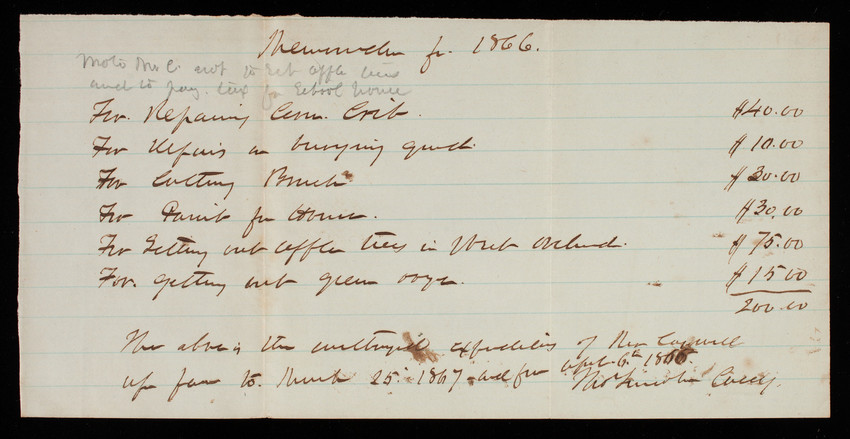 Memorandum for 1866.
Mrs C. not to set apple trees
and to pay tax for School House
For. Repairing Corn. Crib. $40.00
For Repairs on burying ground. $10.00
For Cutting Brush $30.00
For Paint for House. $30.00
For Setting out apple trees in West Orchard. $75.00
For. getting out green $15.00
200.00
The above is the expenditures of Mr Caswell
up farm to. March 25. 1867. and from April 6th 1866.
Thos Lincoln Casey.